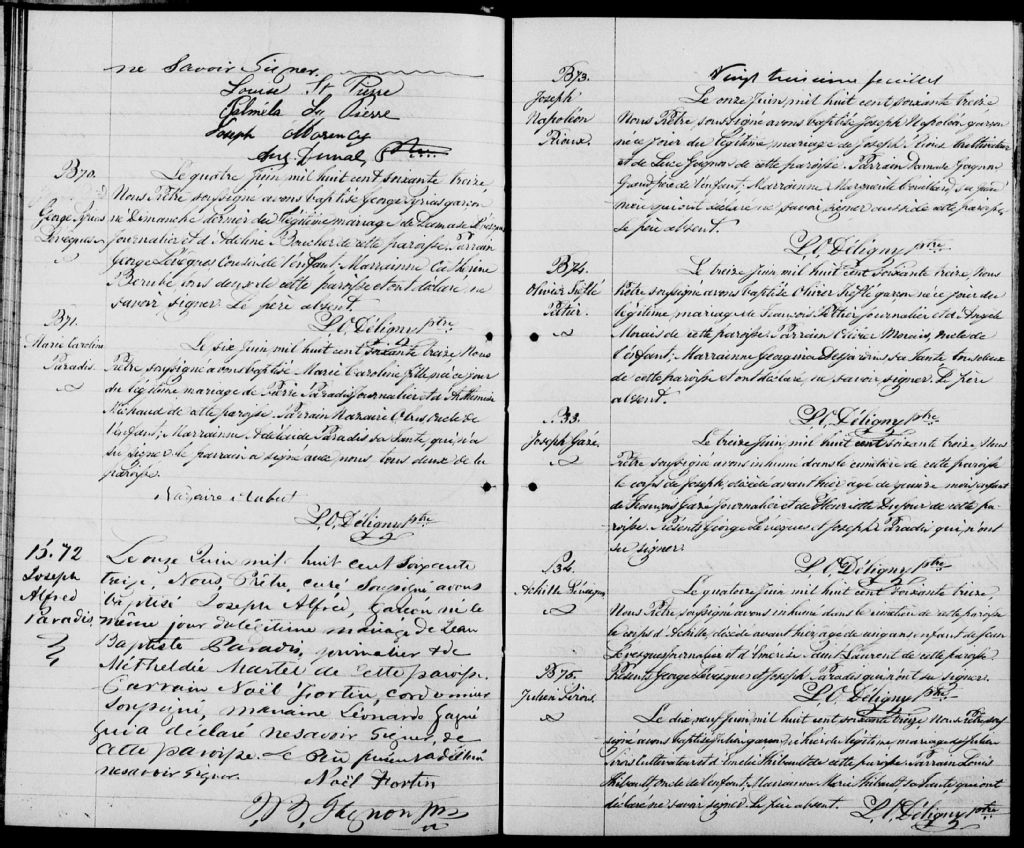 ne savoir signer.
Louise St Pierre
Philomèla St Pierre
Joseph Morency
Aug. Duval
B70.
George Ignas
Lévêques
Le quatre Juin mil huit cent soixante treize
Nous Prêtre soussigné avons baptisé George Ignas garçon
né Dimanche dernier du légitime mariage de Damase Lévesques
Journalier et d'Adeline Boucher de cette paroisse. Parrain
George Levêques Cousin de l'enfant; Marrainne Catherine
Berubé tous deux de cette paroisse et ont déclaré ne
savoir signer. Le père absent.
L.O. Déligny ptre
B71.
Marie Caroline
Paradis.
Le six Juin mil huit cent soixante treize Nous
Prêtre soussigné avons baptisé Marie Caroline fille née ce jour
du légitime mariage de Pierre Paradis Journalier et de
Michaud de cette paroisse. Parrain Nazaire Oncle de
l'enfant; Marrainne Adélaïde Paradis sa Tante, qui n'a
su signer. Le parrain a signé avec nous tous deux de la
paroisse.
Nazaire Aubut
L.O. Déligny ptre
B.72
Joseph
Alfred
Paradis.
Le onze Juin mil huit cent soixante
treize, Nous, Prêtre, curé soussigné avons
baptisé Joseph Alfred, Garçon né le
même jour du légitime mariage de Jean
Baptiste Paradis, journalier & de
Metheldie Martel de cette paroisse
Parrain Noël Fortin, cordonnier
soussigné, marraine Léonarde Gagné
qui a déclaré ne savoir signer, de
cette paroisse. Le Père présent a déclaré
ne savoir signer.
Noël Fortin
Gagnon Ptre
Vingt troisième feuillet
B73.
Joseph
Napoléon
Rioux.
Le onze Juin mil huit cent soixante treize
Nous Prêtre, soussigné avons baptisé Joseph Napoléon garçon
né ce jour du légitime mariage de Joseph Rioux Cultivateur
et de Luce Gagnon de cette paroisse. Parrain Damase Gagnon
Grand père de l'enfant. Marrainne Marguerite sa grand
mère qui ont déclaré ne savoir signer aussi de cette paroisse.
Le père absent.
L.O. Déligny ptre
B74.
Olivier Treflé
Peltier.
Le treize Juin mil huit cent soixante treize, Nous
Prêtre soussigné avons baptisé Olivier Treflé garçon né ce jour du
légitime mariage de François Peltier journalier et d'Angèle
Morais de cette paroisse. Parrain Olivier Morais, Oncle de
l'enfant; Marrainne Georgina Desjardins sa Tante tous deux
de cette paroisse et ont déclaré ne savoir signer. Le père
absent.
L.O. Déligny ptre
S.33.
Joseph Garé.
Le treize Juin mil huit cent soixante treize, Nous
Prêtre soussigné avons inhumé dans le cimetière de cette paroisse
le corps de Joseph, décédé avant hier agé de quinze mois enfant
de François Garé Journalier et de Henriette Dufour de cette pa-
roisse. Présents George Levesques et Joseph Paradis qui n'ont
su signer.
L.O. Déligny ptre
S.34.
Achille Lévesques
Le quatorze Juin mil huit cent soixante treize,
Nous Prêtre soussigné avons inhumé dans le cimetière de cette paroisse
le corps d'Achille, décédé avant hier agé de un an enfant de Jean
Levesques journalier et d'Emerise Saint Laurent de cette paroisse
Présents George Levesques et Joseph Paradis qui n'ont su signer.
L.O. Déligny ptre
B75.
Julien Sirois.
Le dix neuf Juin mil huit cent soixante treize Nous Prêtre, sous-
signé avons baptisé Julien garçon né hier du légitime mariage de Julien
Sirois Cultivateur et d'Emelie Thibault de cette paroisse. Parrain Louis
Thibault oncle de l'enfant, Marrainne Marie Thibault sa Tante qui ont
déclaré ne savoir signer. Le père absent.
L.O. Déligny ptre